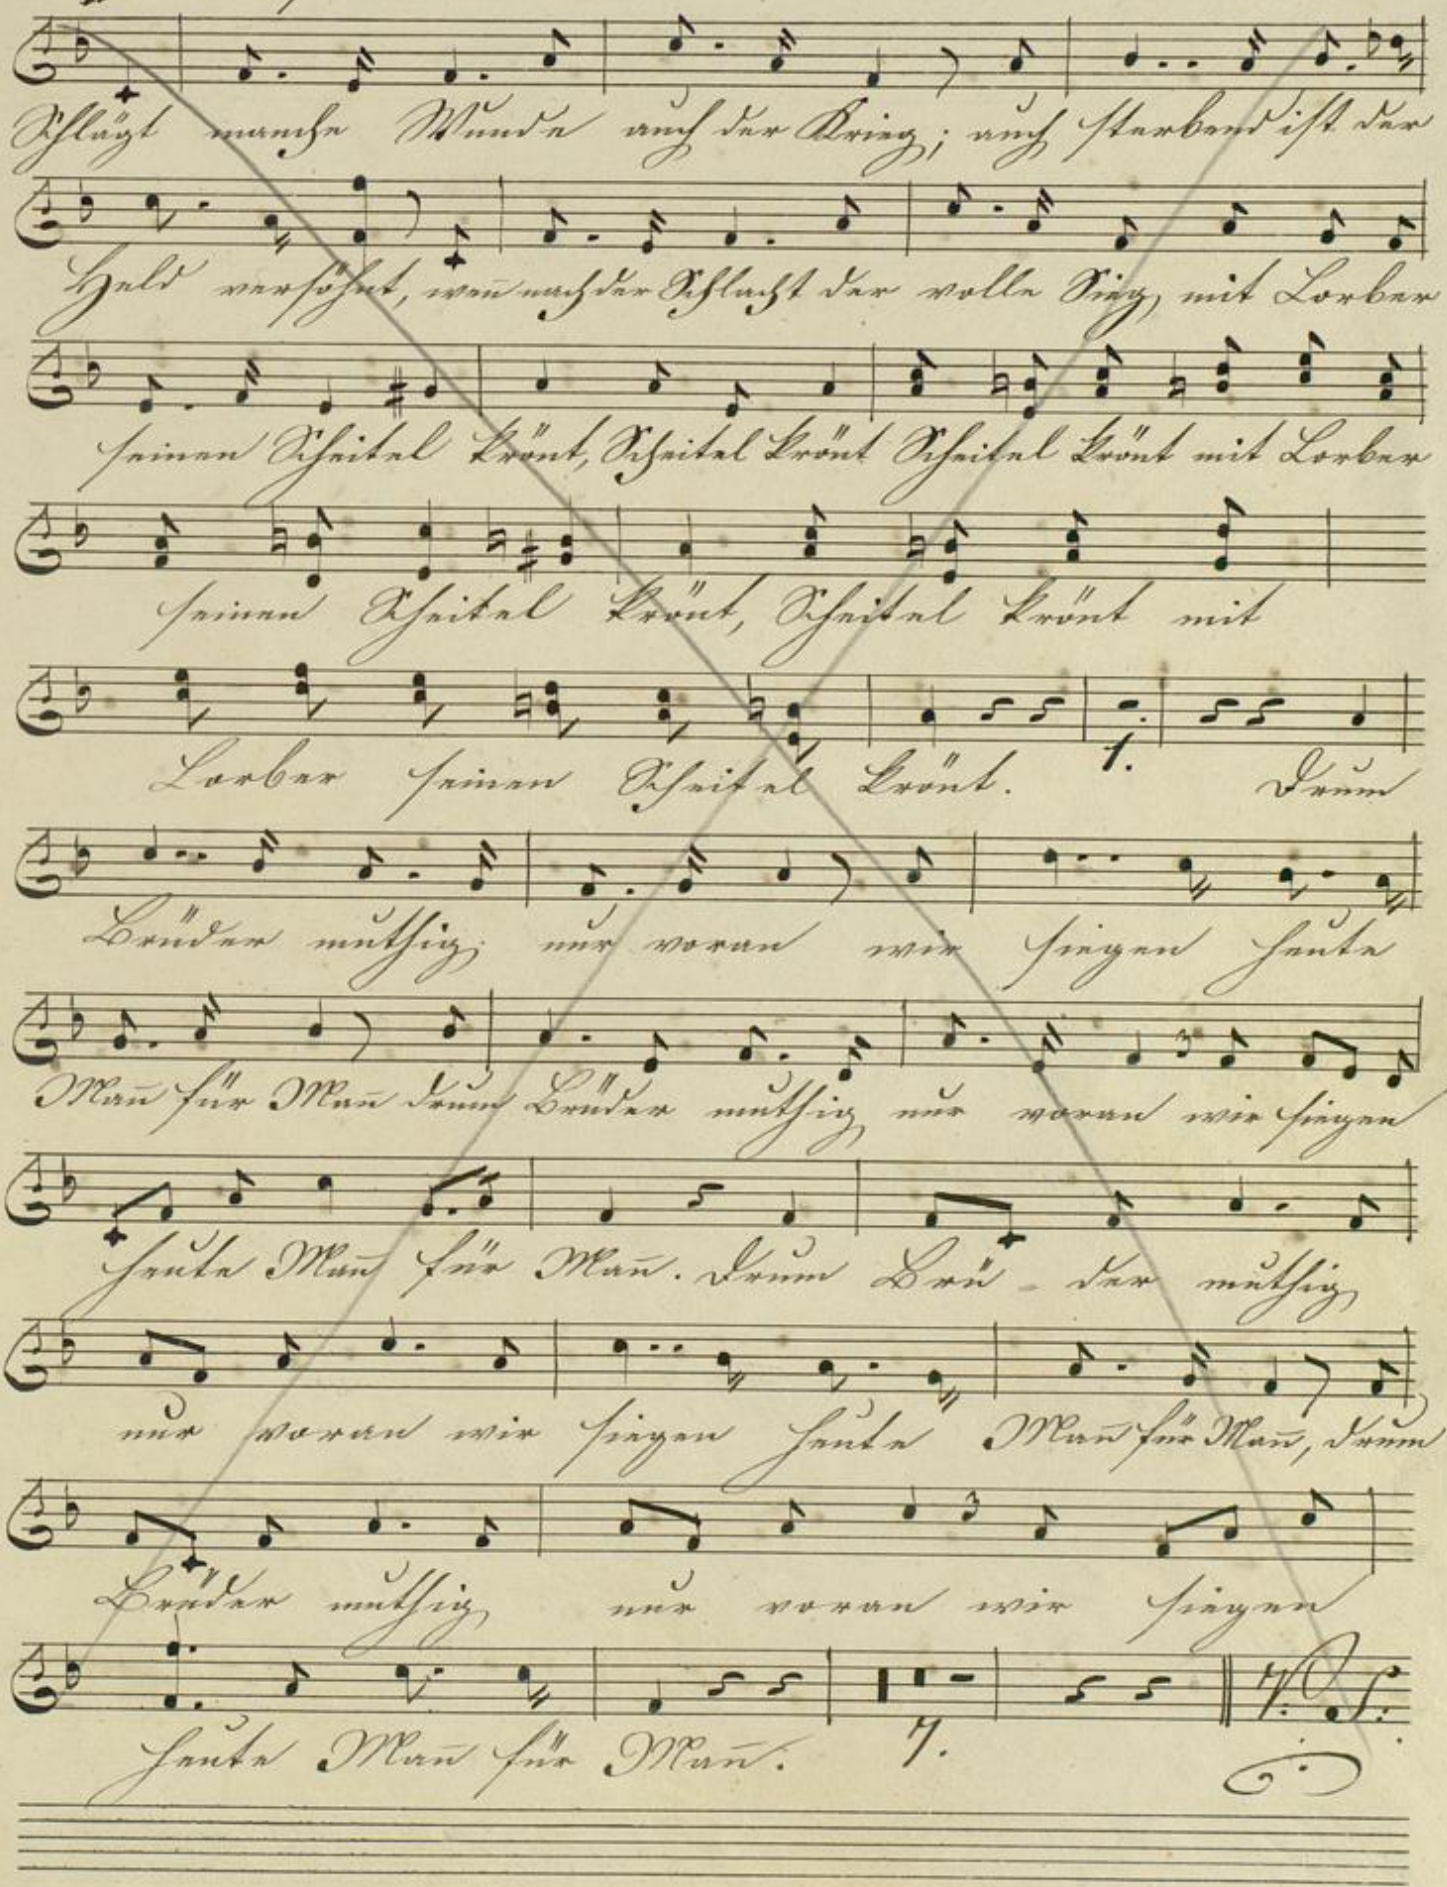 Schlägt manche Wunde auch der Krieg; auch sterbend ist der
Held versöhnt, weñ nach der Schlacht der volle Sieg, mit Lorber
seinen Scheitel krönt, Scheitel krönt Scheitel krönt mit Lorber
seinen Scheitel krönt, Scheitel krönt mit
Lorber seinen Scheitel krönt. 1. Drum
Brüder muthig nur voran wir siegen heute
Mañ für Mañ drum Brüder muthig nur voran wir siegen
heute Mañ für Mañ. Drum Brü - der muthig
nur voran wir siegen heute Mañ für Mañ, drum
Brüder muthig nur voran wir siegen
V. S.
heute Mañ für Mañ. 7.